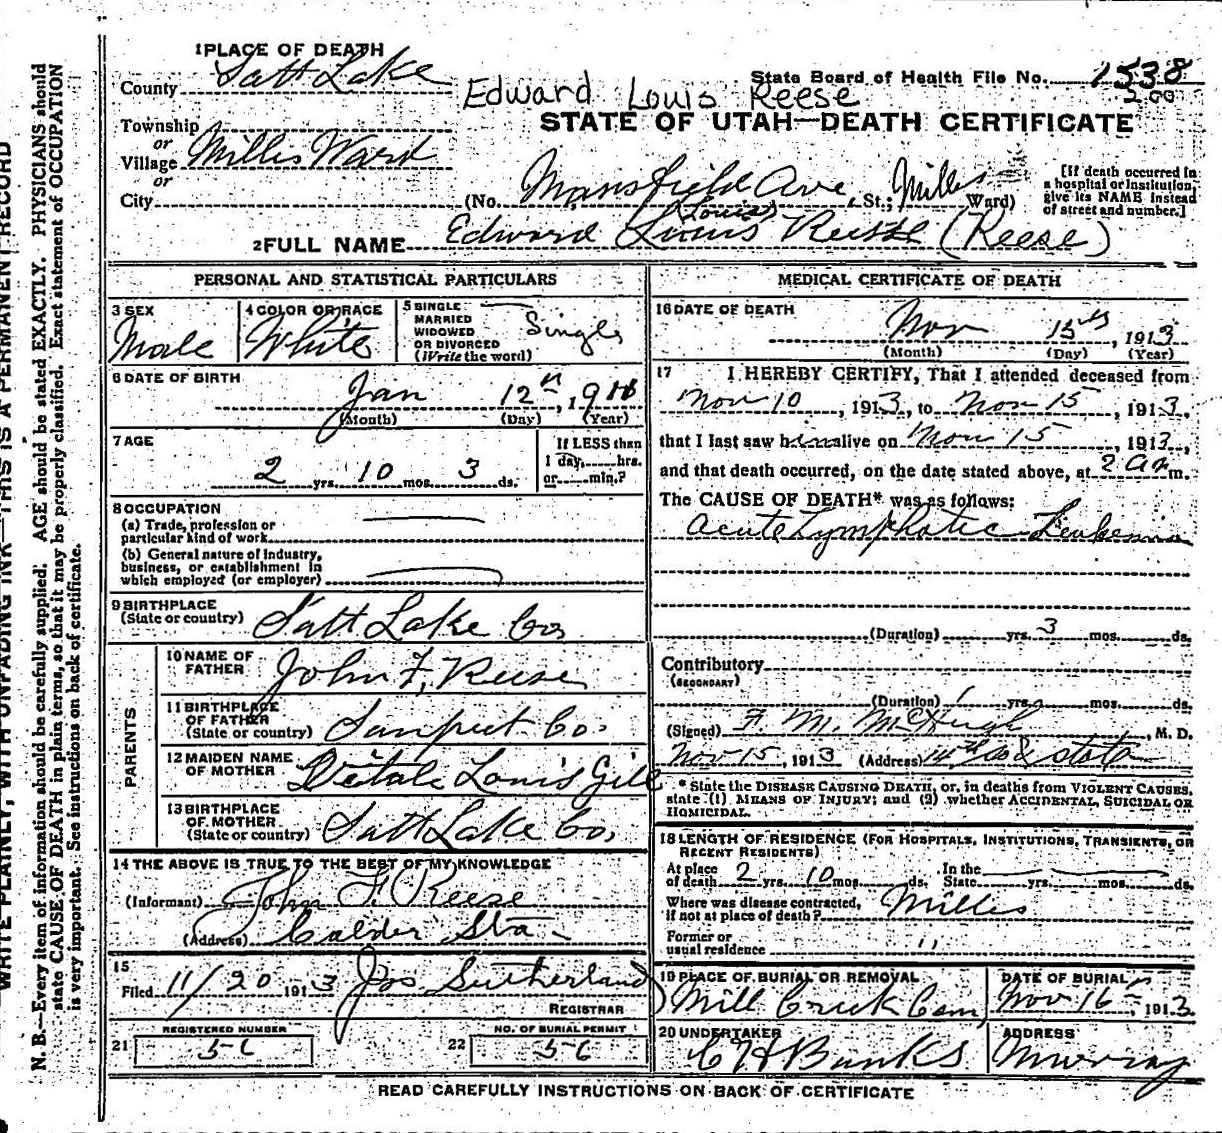 WRITE PLAINLY, WITH UNFADING INK—THIS IS A PERMANENT RECORD
N. B.—Every item of information should be carefully supplied. AGE should be stated EXACTLY. PHYSICIANS should
state CAUSE OF DEATH in plain terms, so that it may be properly classified. Exact statement of OCCUPATION
is very important. See instructions on back of certificate.
1 PLACE OF DEATH
County Salt Lake
State Board of Health File No. 1538
200
Edward Louis Reese
STATE OF UTAH—DEATH CERTIFICATE
Township
or
Village Millis Ward
or
City
(No. Mansfield Ave, St.; Millis Ward)
[If death occurred in
a hospital or institution,
give its NAME instead
of street and number.]
(Louis)
2 FULL NAME Edward Louis Reese (Reese)
PERSONAL AND STATISTICAL PARTICULARS
3 SEX
Male
4 COLOR OR RACE
White
5 SINGLE
MARRIED
WIDOWED
OR DIVORCED
(Write the word)
Single
6 DATE OF BIRTH
Jan 12th, 1911
(Month) (Day) (Year)
7 AGE
2 yrs. 10 mos. 3 ds.
If LESS than
1 day, hrs.
or min.?
8 OCCUPATION
(a) Trade, profession or
particular kind of work
(b) General nature of industry,
business, or establishment in
which employed (or employer)
9 BIRTHPLACE
(State or country) Salt Lake Co
PARENTS
10 NAME OF
FATHER John F. Reese
11 BIRTHPLACE
OF FATHER
(State or country) Sanpeet Co.
12 MAIDEN NAME
OF MOTHER Vitale Louis Gill
13 BIRTHPLACE
OF MOTHER
(State or country) Salt Lake Co,
14 THE ABOVE IS TRUE TO THE BEST OF MY KNOWLEDGE
(Informant) John F. Reese
(Address) Calder Sta
15
Filed 11/20 1913 Jos Sutherland
REGISTRAR
REGISTERED NUMBER
21
NO. OF BURIAL PERMIT
22 56
MEDICAL CERTIFICATE OF DEATH
16 DATE OF DEATH
Nov 15th, 1913
(Month) (Day) (Year)
17 I HEREBY CERTIFY, That I attended deceased from
Nov 10, 1913, to Nov 15, 1913,
that I last saw him alive on Nov 15, 1913,
and that death occurred, on the date stated above, at 2 am.
The CAUSE OF DEATH* was as follows:
Acute Lymphatic Leukemia
(Duration) yrs. 3 mos. ds.
Contributory
(SECONDARY)
(Duration) yrs. mos. ds.
(Signed) F. M. McHugh, M. D.
Nov 15, 1913 (Address) 14th So & State
* State the DISEASE CAUSING DEATH, or, in deaths from VIOLENT CAUSES,
state (1) MEANS OF INJURY; and (2) whether ACCIDENTAL, SUICIDAL OR
HOMICIDAL.
18 LENGTH OF RESIDENCE (FOR HOSPITALS, INSTITUTIONS, TRANSIENTS, OR
RECENT RESIDENTS)
At place
of death 2 yrs. 10 mos. ds.
In the
State yrs. mos. ds.
Where was disease contracted,
if not at place of death? Millis
Former or
usual residence "
19 PLACE OF BURIAL OR REMOVAL
Mill Creek Cem,
DATE OF BURIAL
Nov 16th, 1913.
20 UNDERTAKER
C H Bunks
ADDRESS
Murray
READ CAREFULLY INSTRUCTIONS ON BACK OF CERTIFICATE